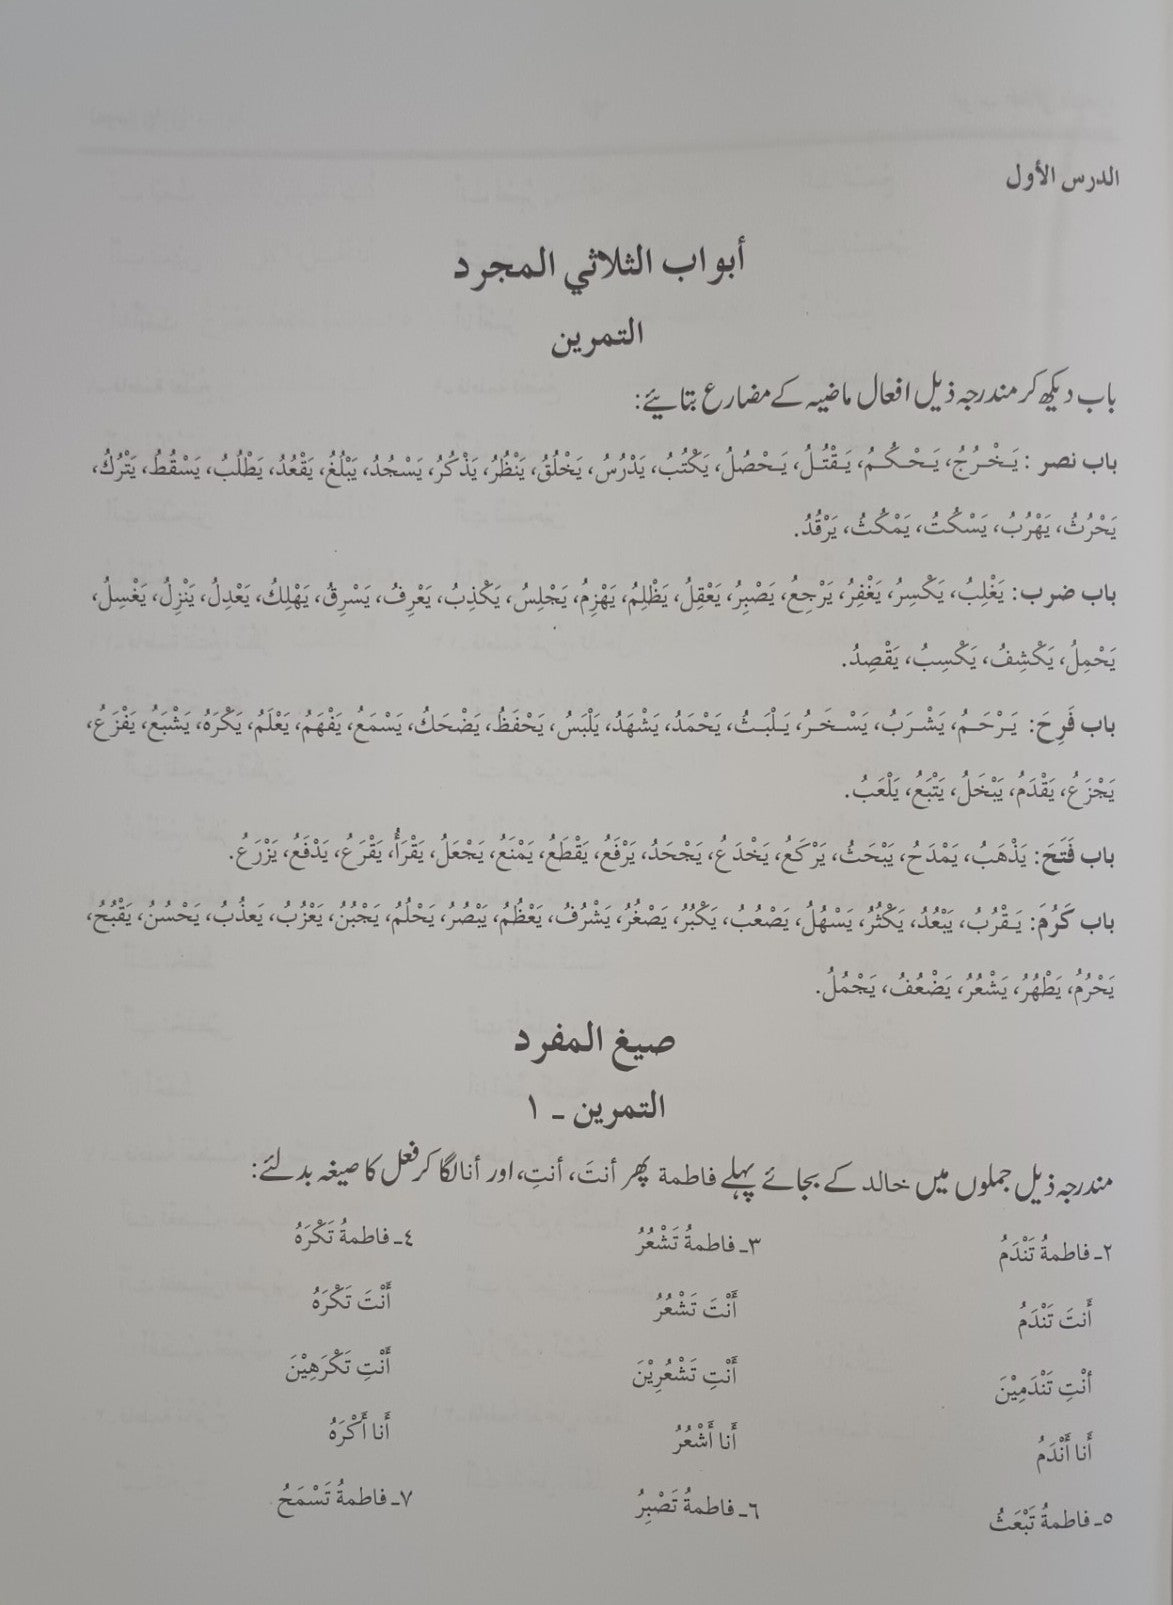 الدرس الأول
أبواب الثلاثي المجرد
التمرين
باب دیکھ کر مندرجہ ذیل افعال ماضیہ کے مضارع بتایئے:
باب نصر : يَـخْـرُجُ، يَـحْـكُـمُ، يَـقْتُـلُ، يَـحْصُلُ، يَكْتُبُ، يَدْرُسُ، يَخْلُقُ، يَنْظُرُ، يَذْكُرُ، يَسْجُدُ، يَبْلُغُ، يَقْعُدُ، يَطْلُبُ، يَسْقُطُ، يَتْرُكُ،
يَحْرُثُ، يَهْرُبُ، يَسْكُتُ، يَمْكُثُ، يَرْقُدُ.
باب ضرب: يَغْلِبُ، يَكْسِرُ، يَغْفِرُ، يَرْجِعُ، يَصْبِرُ، يَعْقِلُ، يَظْلِمُ، يَهْزِمُ، يَجْلِسُ، يَكْذِبُ، يَعْرِفُ، يَسْرِقُ، يَهْلِكُ، يَعْدِلُ، يَنْزِلُ، يَغْسِلُ،
يَحْمِلُ، يَكْشِفُ، يَكْسِبُ، يَقْصِدُ.
باب فَرِحَ: يَـرْحَـمُ، يَشْـرَبُ، يَسْـخَـرُ، يَـلْبَـثُ، يَحْمَدُ، يَشْهَدُ، يَلْبَسُ، يَحْفَظُ، يَضْحَكُ، يَسْمَعُ، يَفْهَمُ، يَعْلَمُ، يَكْرَهُ، يَشْبَعُ، يَفْزَعُ،
يَجْزَعُ، يَقْدَمُ، يَبْخَلُ، يَتْبَعُ، يَلْعَبُ.
باب فَتَحَ: يَذْهَبُ، يَمْدَحُ، يَبْحَثُ، يَرْكَعُ، يَخْدَعُ، يَجْحَدُ، يَرْفَعُ، يَقْطَعُ، يَمْنَعُ، يَجْعَلُ، يَقْرَأُ، يَقْرَعُ، يَدْفَعُ، يَزْرَعُ.
باب كَرُمَ: يَـقْرُبُ، يَبْعُدُ، يَكْثُرُ، يَسْهُلُ، يَصْعُبُ، يَكْبُرُ، يَصْغُرُ، يَشْرُفُ، يَعْظُمُ، يَبْصُرُ، يَحْلُمُ، يَجْبُنُ، يَعْزُبُ، يَعذُبُ، يَحْسُنُ، يَقْبُحُ،
يَحْرُمُ، يَطْهُرُ، يَشْعُرُ، يَضْعُفُ، يَجْمُلُ.
صيغ المفرد
التمرين ـ ١
مندرجہ ذیل جملوں میں خالد کے بجائے پہلے فاطمة پھر أنتَ، أنتِ، اور أنا لگا کر فعل کا صیغہ بدلئے:
٢ـ فاطمةُ تَنْدَمُ ٣ـ فاطمةُ تَشْعُرُ ٤ـ فاطمةُ تَكْرَهُ
أَنتَ تَنْدَمُ أَنْتَ تَشْعُرُ أَنْتَ تَكْرَهُ
أنْتِ تَنْدَمِيْنَ أَنْتِ تَشْعُرِيْنَ أَنْتِ تَكْرَهِيْنَ
أَنا أَنْدَمُ أَنا أَشْعُرُ أَنا أَكْرَهُ
٥ـ فاطمةُ تَبْعَثُ ٦ـ فاطمةُ تَصْبِرُ ٧ـ فاطمةُ تَسْمَحُ